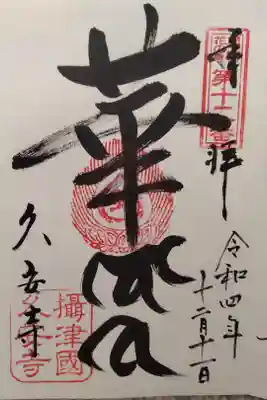 奉拝
第十二番
華
令和四年
十二月十一日
久安寺
攝津國
久安寺